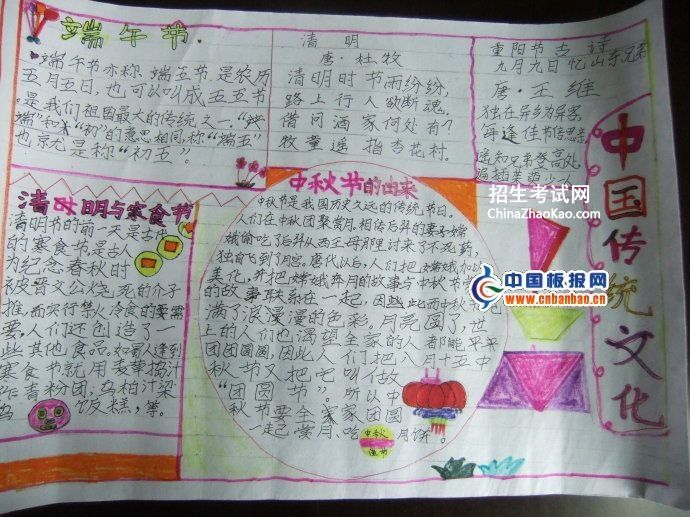 端午节
端午节亦称端五节,是农历
五月五日,也可以叫成五五节
是我们祖国最大的传统之一,"
端"和"初"的意思相同,称"端五"
也就是称"初五"。
清明
唐·杜牧
清明时节雨纷纷,
路上行人欲断魂,
借问酒家何处有
牧童遥指杏花村。
重阳节古诗
九月九日忆山东兄弟
唐·王维
独在异乡为异客
每逢佳节倍思亲
遥知兄弟登高处
遍插茱萸少一人
中国传统文化
清明与寒食节
清明节的前一天是古
的寒食节是古人
为纪念春秋时
被晋文公烧死的介子
推,而实行禁火冷食的需
要,人们还创造了一
些其他食品。如蜀人逢到
寒食节就用麦草捣汁
作青粉团,乌桕汁染
乌饭糕,等。
中秋节的由来
中秋节是我国历史久远的传统节日。
人们在中秋团聚赏月。相传后羿的妻子嫦
娥偷吃了后羿从西王母那里讨来了不死药,
独自飞到了月宫。唐代以后,人们把嫦娥加以
美化,并把嫦娥奔月的故事与中秋节
的故事联系在一起,因此此而中秋节充
满了浪漫漫的色彩。月亮圆了,世
上的人们也渴望全家的人都能平平
团团圆圆,因此人们把八月十五中
秋节又把它叫做
"团圆节"。所以中
秋节要全家家团圆
一起赏月、吃月饼。
中秋
佳节
招生考试网
ChinaZhaoKao.com
中国板报网
www.cnbanbao.cn